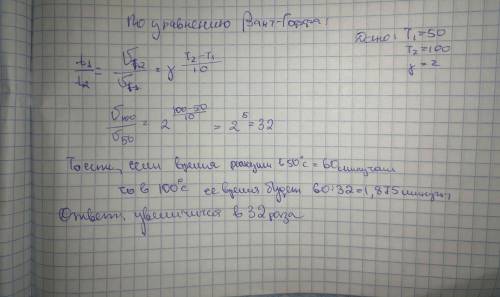 По уравнению Вант-Гоффа:
Дано: T₁=50
T₂=100
γ=2
t₁/t₂ = υt₂/υt₁ = γ^((T₂-T₁)/10)
υ100/υ50 = 2^((100-50)/10) = 2⁵ = 32
То есть, если время реакции в 50°с = 60 минутам
то в 100°с ее время будет 60:32=1,875 минут,
Ответ, увеличится в 32 раза